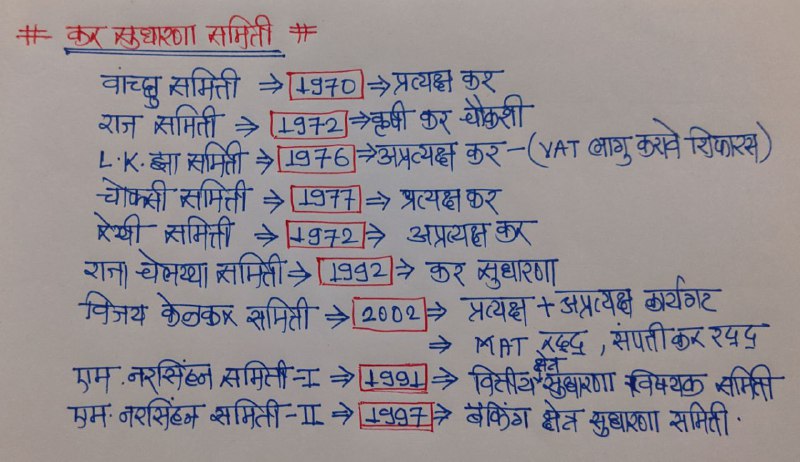 # कर सुधारणा समिती #
वांच्छु समिती ⇒ 1970 ⇒ प्रत्यक्ष कर
राज समिती ⇒ 1972 ⇒ कृषी कर चौकशी
L.K. झा समिती ⇒ 1976 ⇒ अप्रत्यक्ष कर – (VAT लागु करावे शिफारस)
चोकसी समिती ⇒ 1977 ⇒ प्रत्यक्ष कर
रेखी समिती ⇒ 1972 ⇒ अप्रत्यक्ष कर
राजा चेलय्या समिती ⇒ 1992 ⇒ कर सुधारणा
विजय केलकर समिती ⇒ 2002 ⇒ प्रत्यक्ष + अप्रत्यक्ष कार्यगट
⇒ MAT रद्द, संपत्ती कर रद्द
एम. नरसिंहन समिती-I ⇒ 1991 ⇒ वित्तीय क्षेत्र सुधारणा विषयक समिती
एम. नरसिंहन समिती-II ⇒ 1997 ⇒ बँकिंग क्षेत्र सुधारणा समिती.